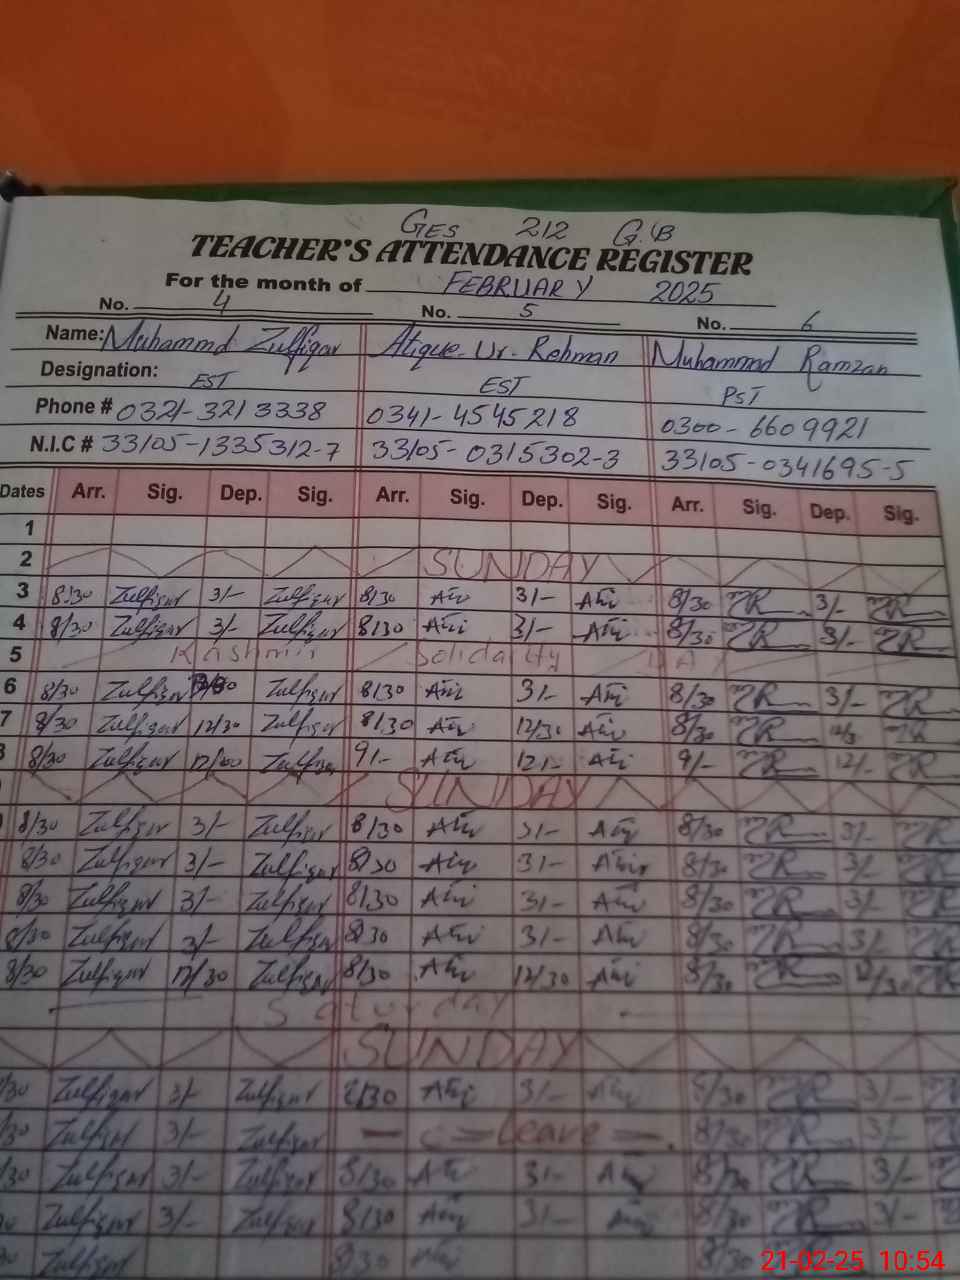 GES 212 G.B
TEACHER'S ATTENDANCE REGISTER
For the month of FEBRUARY 2025
No. 4 No. 5 No. 6
Name: Muhammd Zulfiqar Atique-Ur-Rehman Muhammad Ramzan
Designation: EST EST PST
Phone # 0321-3213338 0341-4545218 0300-6609921
N.I.C # 33105-1335312-7 33105-0315302-3 33105-0341695-5
Dates Arr. Sig. Dep. Sig. Arr. Sig. Dep. Sig. Arr. Sig. Dep. Sig.
1
2 SUNDAY
3 8/30 Zulfiqar 3/- Zulfiqar 8/30 3/- 8/30 3/-
4 8/30 Zulfiqar 3/- Zulfiqar 8/30 3/- 8/30 3/-
5 Kashmir Solidarity DAY
6 8/30 Zulfiqar Zulfiqar 8/30 3/- 8/30 3/-
7 8/30 Zulfiqar 12/30 Zulfiqar 8/30 12/30 8/30
8/30 Zulfiqar 12/00 Zulfiqar 9/- 12/- 9/- 12/-
SUNDAY
8/30 Zulfiqar 3/- Zulfiqar 8/30 3/- 8/30 3/-
8/30 Zulfiqar 3/- Zulfiqar 8/30 3/- 8/30 3/-
8/30 Zulfiqar 3/- Zulfiqar 8/30 3/- 8/30 3/-
8/30 Zulfiqar 3/- Zulfiqar 8/30 3/- 8/30 3/-
8/30 Zulfiqar 12/30 Zulfiqar 8/30 12/30 8/30 12/30
Saturday
SUNDAY
/30 Zulfiqar 3/- Zulfiqar 8/30 3/- 8/30 3/-
/30 Zulfiqar 3/- Zulfiqar Leave 8/30 3/-
/30 Zulfiqar 3/- Zulfiqar 8/30 3/- 8/30 3/-
Zulfiqar 3/- Zulfiqar 8/30 3/- 8/30 3/-
Zulfiqar 8/30 8/30
21-02-25 10:54